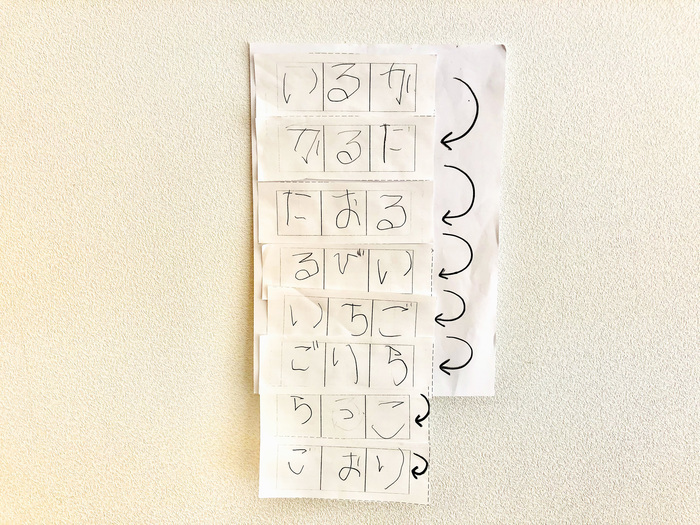 いるか
かるた
たおる
るびい
いちご
ごりら
らっこ
こおり